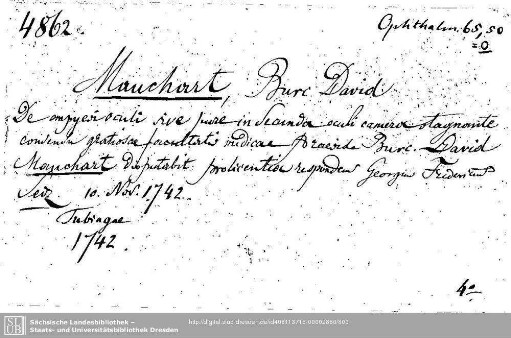 4862.
Ophthalm. 65, 50
= 0
Mauchart, Burc. David
De empyesi oculi sive pure in secunda oculi camera stagnante
consensu gratiosae facultatis medicae Praeside Burc. David
Mauchart disputabit pro licentia respondens Georgius Fridericus
Seiz 10. Nov. 1742.
Tubingae
1742.
4°
SLUB
Sächsische Landesbibliothek –
Staats- und Universitätsbibliothek Dresden